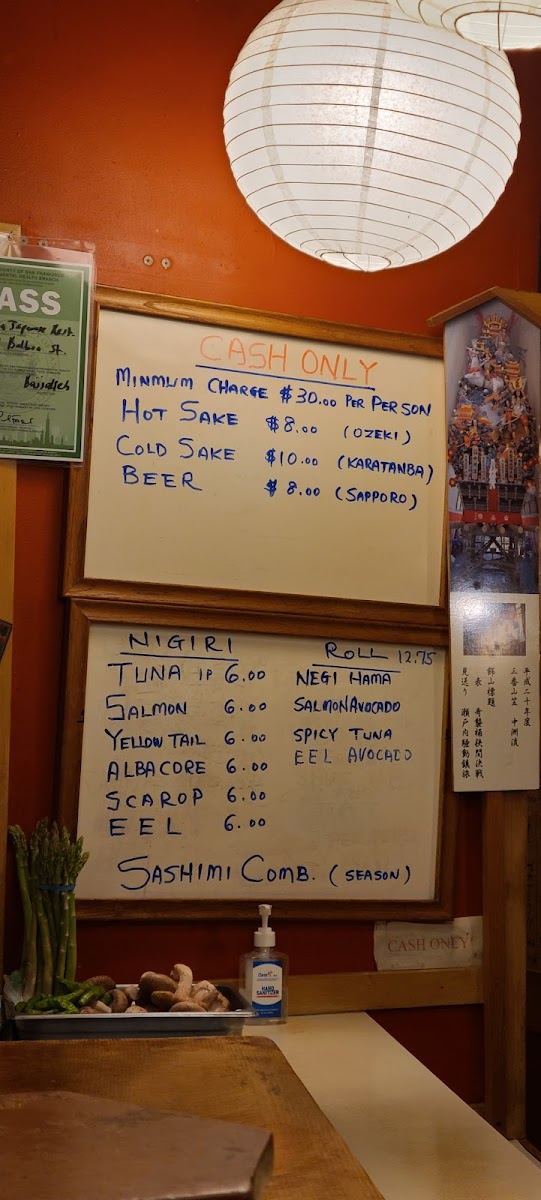 COUNTY OF SAN FRANCISCO
MENTAL HEALTH BRANCH
ASS
Japanese Rest.
Balboa St.
CASH ONLY
MINMUM CHARGE $30.00 PER PERSON
HOT SAKE $8.00 (OZEKI)
COLD SAKE $10.00 (KARATANBA)
BEER $8.00 (SAPPORO)
NIGIRI
TUNA 1P 6.00
SALMON 6.00
YELLOW TAIL 6.00
ALBACORE 6.00
SCAROP 6.00
EEL 6.00
ROLL 12.75
NEGI HAMA
SALMON AVOCADO
SPICY TUNA
EEL AVOCADO
SASHIMI COMB. (SEASON)
平成二十年度
三番山笠 中洲流
飾山標題
表 奇襲桶狭間決戦
見送り 瀬戸内騒動鎮旅
HAND
SANITIZER
CASH ONLY